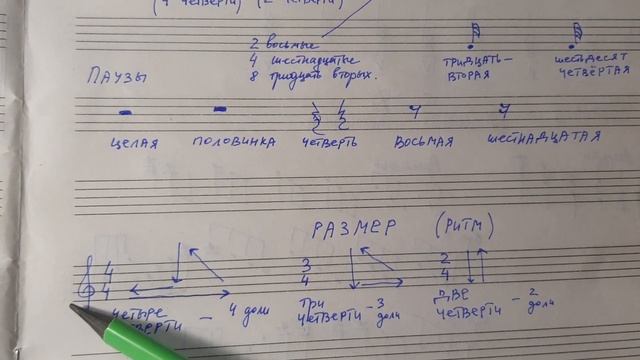 (4 четверти) (2 четверти)
2 восьмые
4 шестнадцатые
8 тридцать вторых.
ТРИДЦАТЬ-
ВТОРАЯ
ШЕСТЬДЕСЯТ
ЧЕТВЁРТАЯ
ПАУЗЫ
ЦЕЛАЯ ПОЛОВИНКА ЧЕТВЕРТЬ ВОСЬМАЯ ШЕСТНАДЦАТАЯ
РАЗМЕР (РИТМ)
4 3 2
4 4 4
ЧЕТЫРЕ
ЧЕТВЕРТИ - 4 доли
ТРИ
ЧЕТВЕРТИ - 3 доли
ДВЕ
ЧЕТВЕРТИ - 2 доли